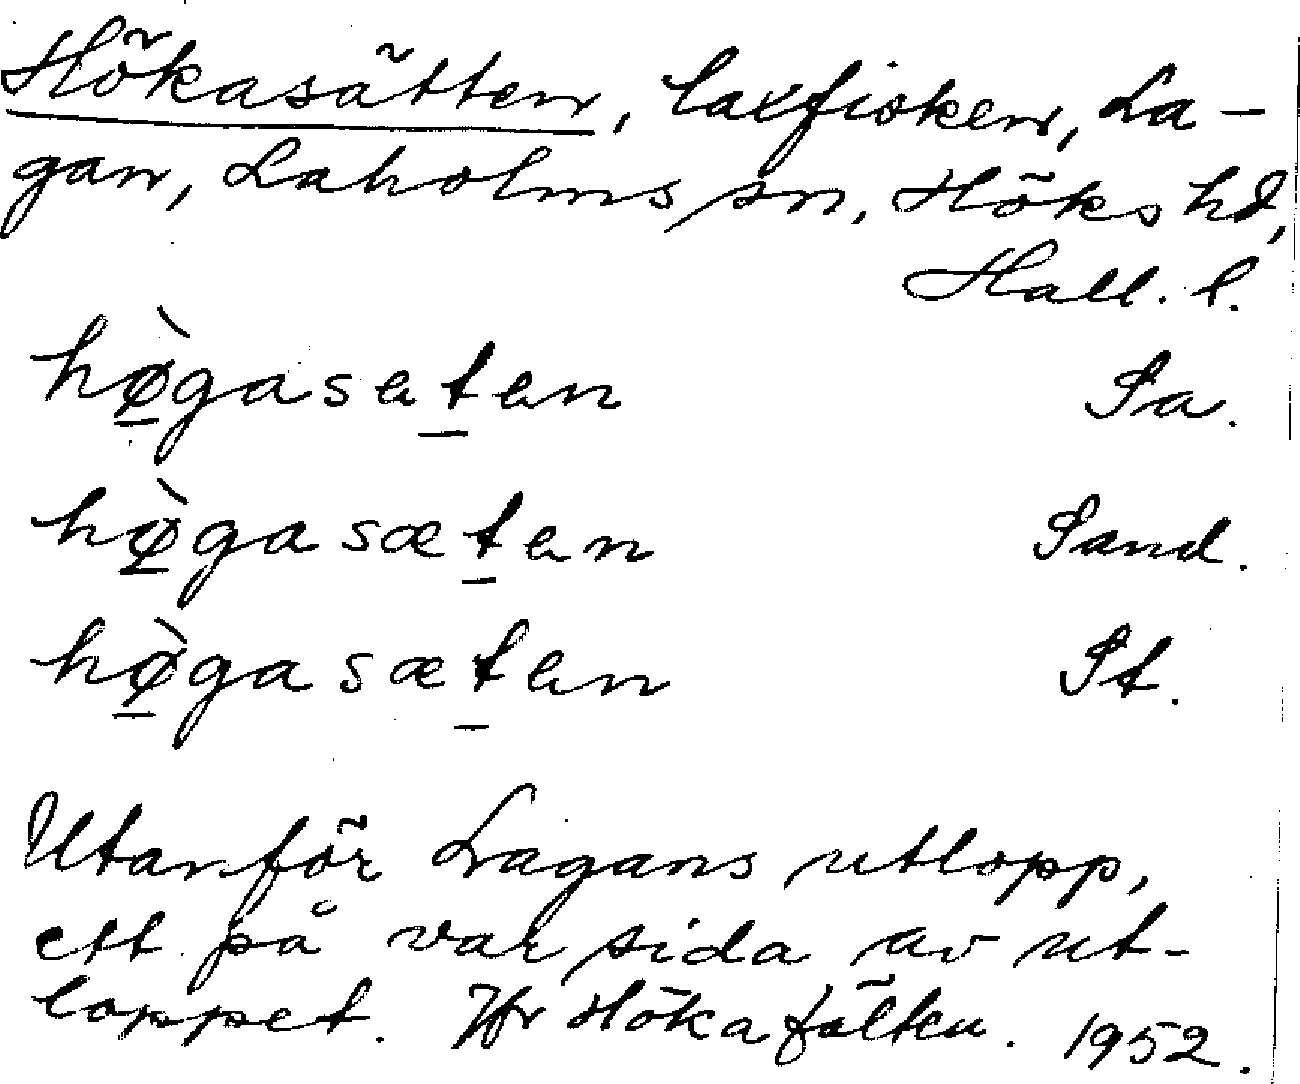 Hökasätten, laxfisken, La-
gan, Laholms sn, Höks hd,
Hall. l.
hø̀gaseten Sa.
hø̀gasæten Sand.
hø̀gasæten St.
Utanför Lagans utlopp,
ett på var sida av ut-
loppet. Jfr Hökafälten. 1952.